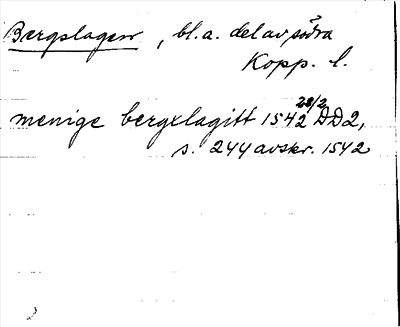 Bergslagen, bl.a. del av södra
Kopp. l.
28/2
menige bergxlagitt 1542 DD2,
s. 244 avskr. 1542